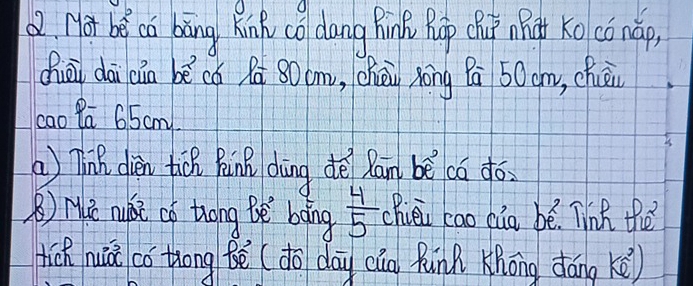 2. Một bể cá bằng kính có dạng hình hộp chữ nhật ko có nắp,
chiều dài của bể cá là 80 cm, chiều rộng là 50 cm, chiều
cao là 65cm.
a) Tính diện tích kính dùng để làm bể cá đó.
b) Mực nước có trong bể bằng 4/5 chiều cao của bể. Tính thể
tích nước có trong bể (độ dày của kính không đáng kể)